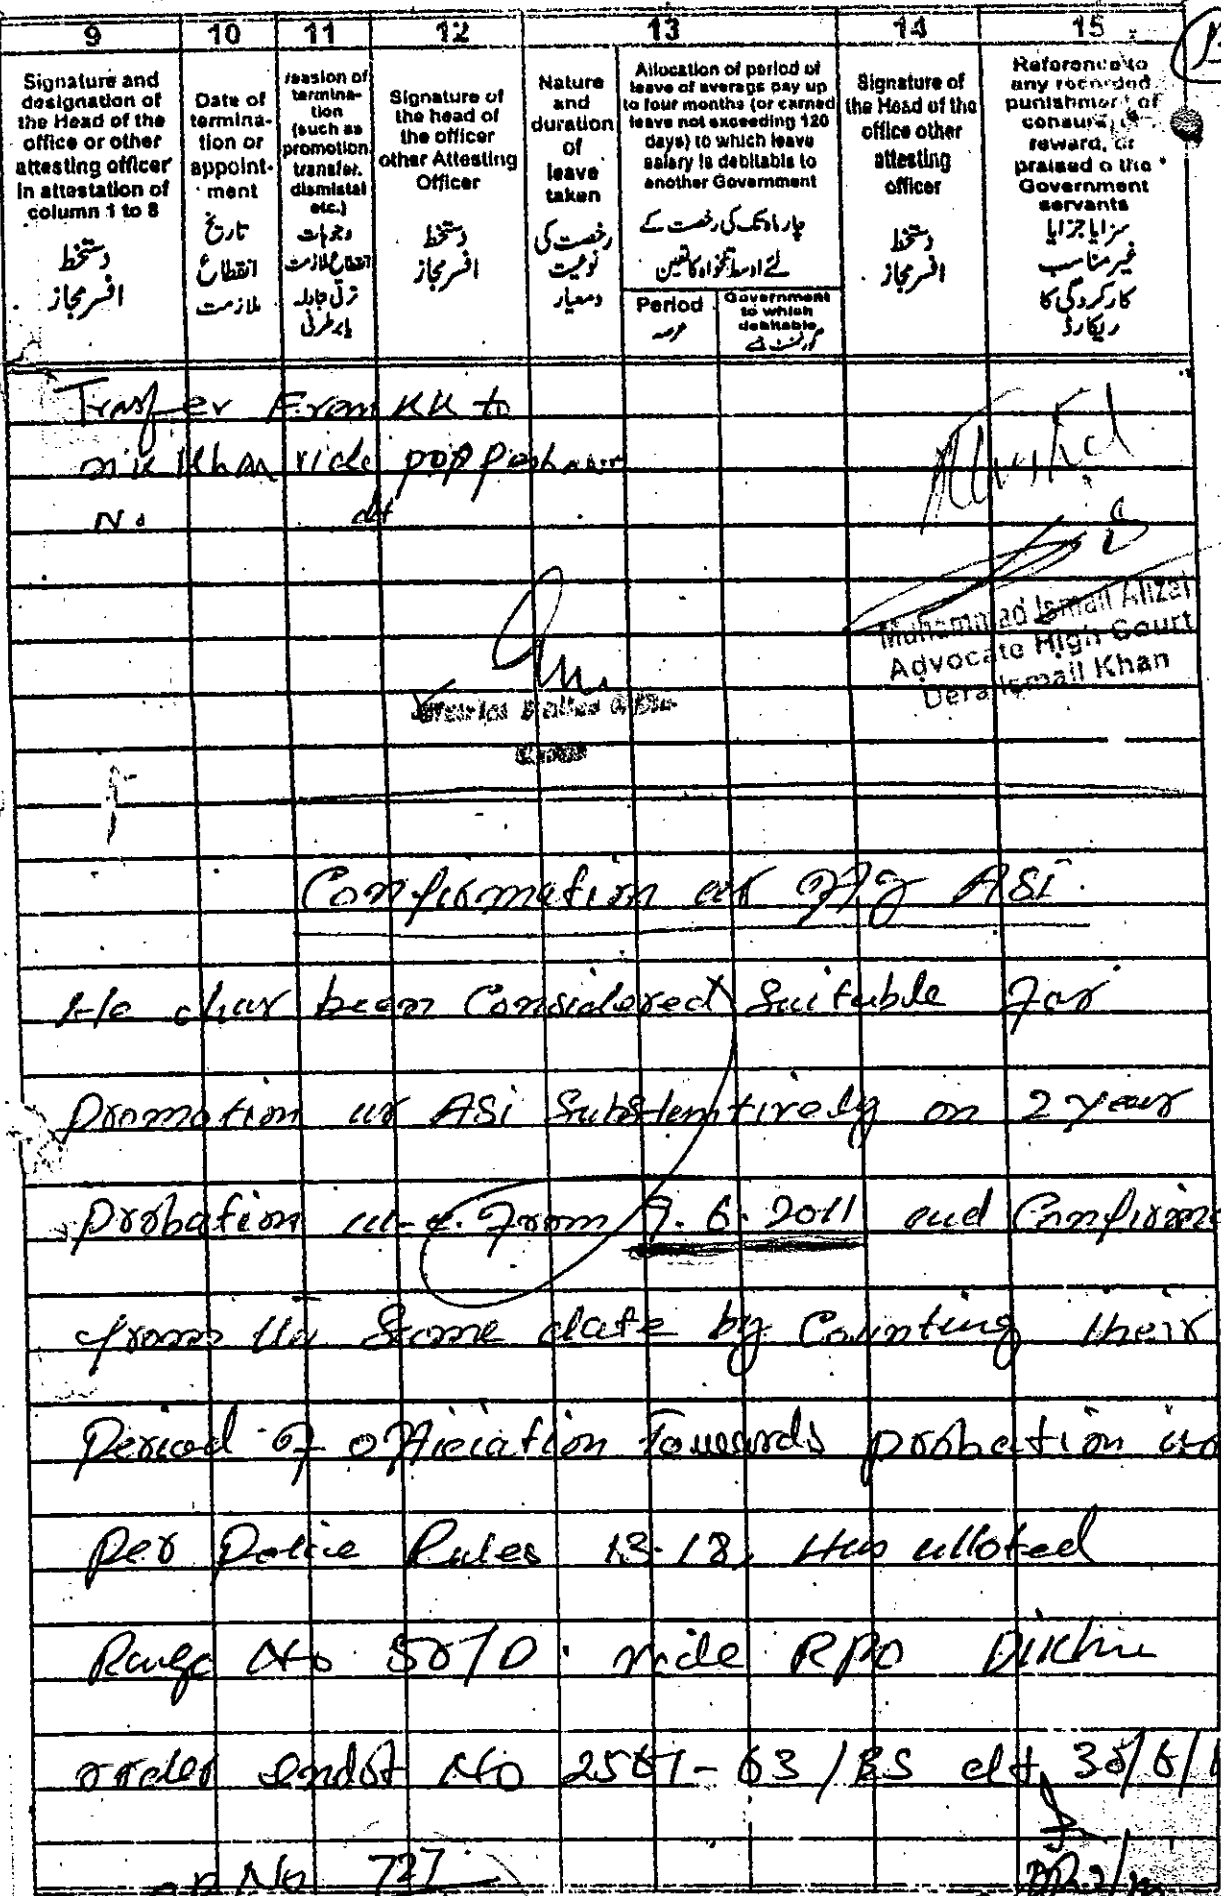 9 10 11 12 13 14 15
Signature and
designation of
the Head of the
office or other
attesting officer
in attestation of
column 1 to 8
دستخط
افسر مجاز
Date of
termina-
tion or
appoint-
ment
تاریخ
انقطاع
ملازمت
reasion of
termina-
tion
(such as
promotion
transfer.
dismistal
etc.)
وجوہات
انقطاع ملازمت
ترقی تبادلہ
یا برطرفی
Signature of
the head of
the officer
other Attesting
Officer
دستخط
افسر مجاز
Nature
and
duration
of
leave
taken
رخصت کی
نوعیت
ومعیار
Allocation of period of
leave of averags pay up
to four months (or earned
leave not exceeding 120
days) to which leave
salary is debitable to
another Government
چار ماہ تک کی رخصت کے
لئے اوسط تنخواہ کا تعین
Period
عرصہ
Government
to which
debitable
Signature of
the Head of the
office other
attesting
officer
دستخط
افسر مجاز
Reference to
any recorded
punishment of
censure, or
reward, or
praised o the
Government
servants
سزا یا جزا یا
غیر مناسب
کارکردگی کا
ریکارڈ
Trasfer From KK to
Khan vide
No dt
Attested
Muhammad Ismail Alizai
Advocate High Court
Dera Ismail Khan
Confirmation as ASI
He has been Considered Suitable For
Promotion as ASI Substentively on 2 year
probation w-e-From 9.6.2011 and Confirme
from the Same date by Counting their
Period of officiation Towards probation as
per Police Rules 13.18. Has alloted
Range No D. vide RPO DIKhan
order endst No 63/ES dt 30/6/1
No 727